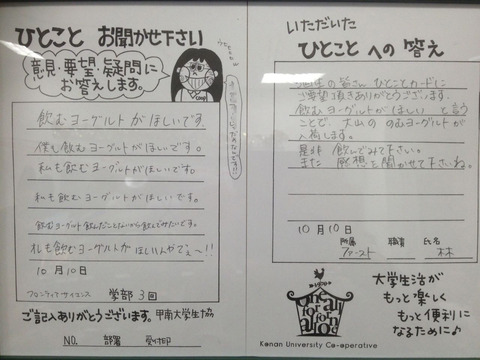 ひとこと お聞かせ下さい
意見・要望・疑問に
お答えします。
飲むヨーグルトがほしいです
僕も飲むヨーグルトがほしいです。
私も飲むヨーグルトがほしいです。
私も飲むヨーグルトがほしいです。
飲むヨーグルト飲んだことないから飲んでみたいです。
オレも飲むヨーグルトがほしいんやでぇ〜!!
10月10日
フロンティアサイエンス 学部 3回
ご記入ありがとうございます。甲南大学生協
NO. 部署 受付印
いただいた
ひとこと への 答え
の皆さん ひとことカードに
ご要望頂きありがとうございます。
飲むヨーグルトがほしい と言う
ことで、大山の のむヨーグルトが
入荷します。
是非 飲んでみて下さい。
また 感想を聞かせて下さいね。
10月10日
所属 職責 氏名
ファースト 林
大学生活が
もっと楽しく
もっと便利に
なるために♪
Konan University Co-operative